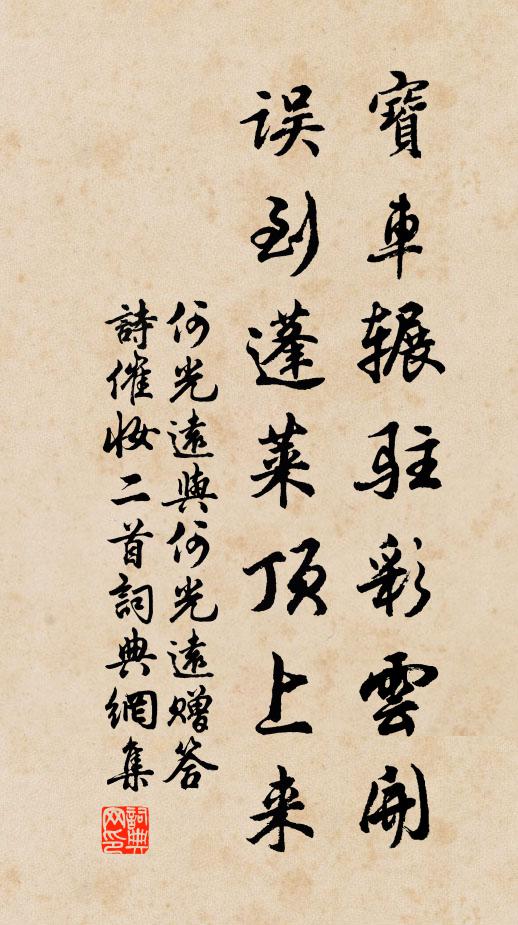 寶車辗駐彩雲開
误到蓬莱顶上来
何光遠與何光遠贈答
詩催妝二首詞典網集
詞典
网印